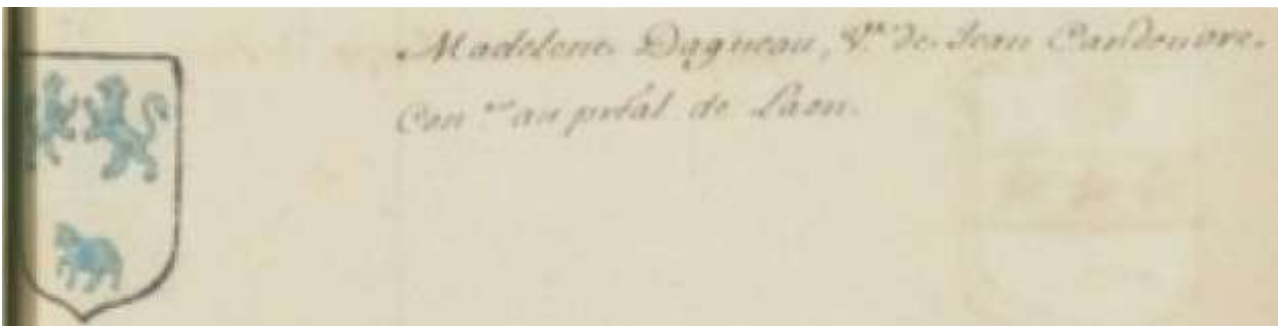 Madelene Dagneau, V.e de Jean Candouvre.
Con.er au préal de Laon.